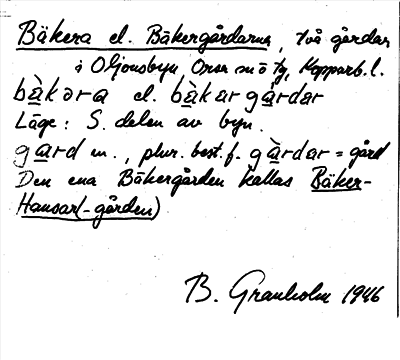 Bäkera el. Bäkergårdarna, två gårdar
i Oljonsbyn, Orsa sn ö tg, Kopparb. l.
bàkəra el. bàkərgàrdar
Läge: S. delen av byn.
gard m., plur. best. f. gàrdar = gård
Den ena Bäkergården kallas Bäker-
Hansar(-gården)
B. Granholm 1946